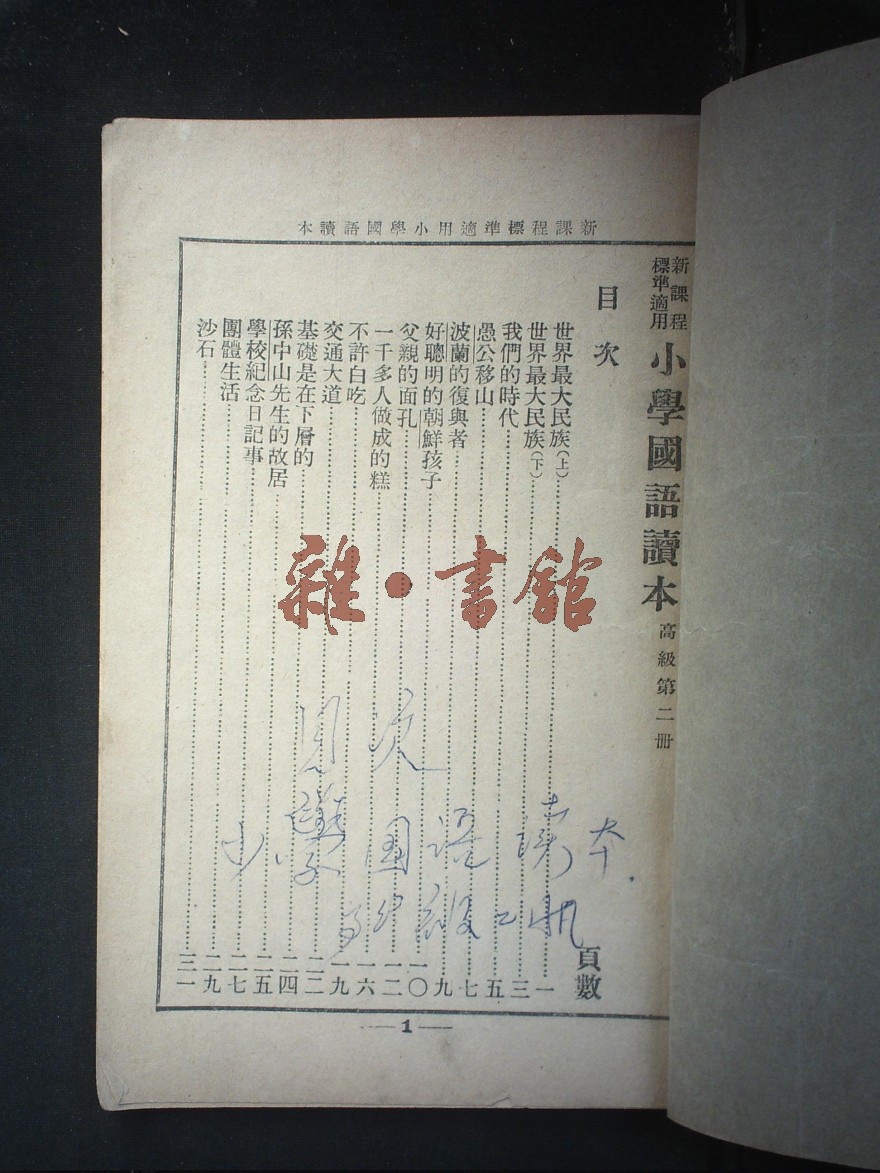 新課程標準適用小學國語讀本
新課程標準適用 小學國語讀本 高級第二冊
目次 頁數
世界最大民族(上)……一
世界最大民族(下)……三
我們的時代……五
愚公移山……七
波蘭的復興者……九
好聰明的朝鮮孩子……一〇
父親的面孔……一二
一千多人做成的糕……一六
不許白吃……一九
交通大道……二二
基礎是在下層的……二四
孫中山先生的故居……二五
學校紀念日記事……二七
團體生活……二九
沙石……三一
目次
小學国语读本
级二册
雜·書館
1